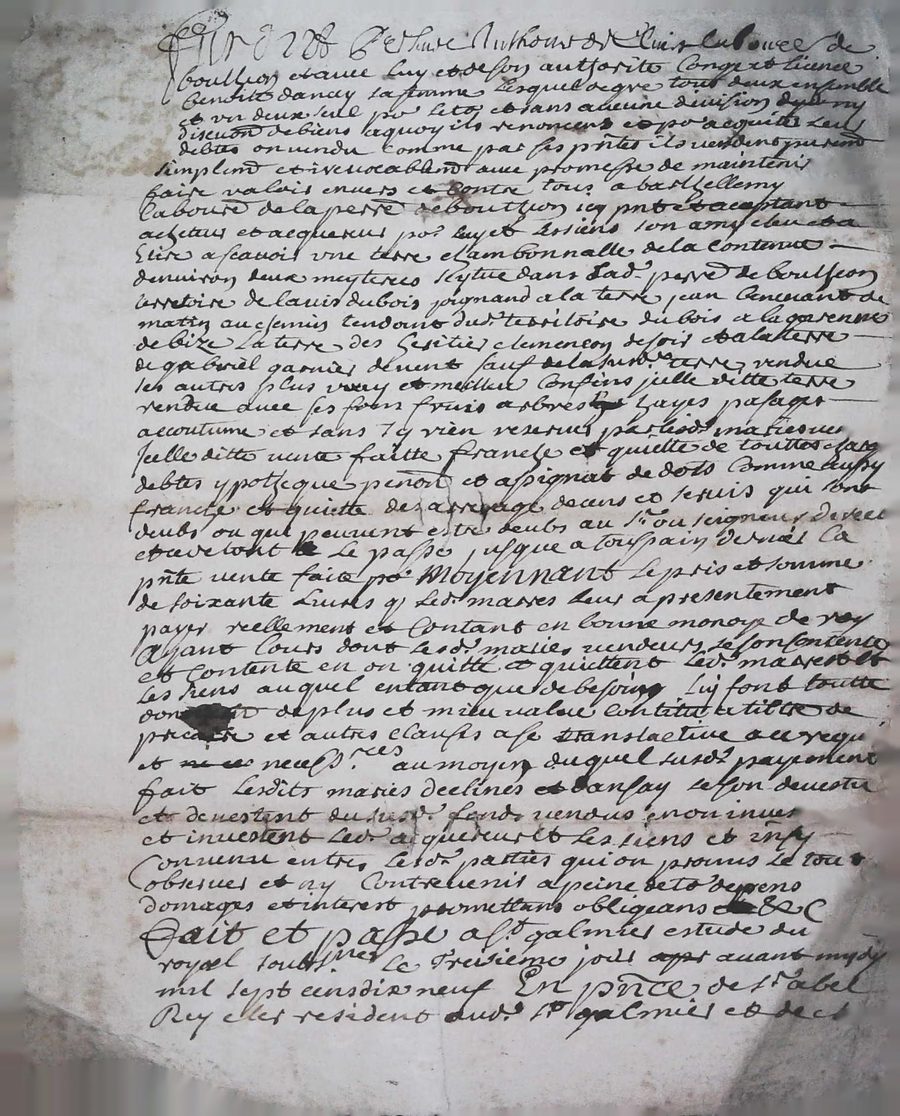 personne Anthoine de Clines laboureur de
bouthion et avec luy et de son authorité Congé et licence
benoiste dancay sa femme Lesquel de gre tous deux ensemble
et un deux seul po.r le to.t et sans aucune division dy ny
discution de biens a quoy ils renoncent et po.r acquiter leurs
debtes on vendu comme par ses pntes ils vendent purem.t
simplem.t et irrevocablem.t avec promesse de maintenir
faire valoir envers et contre tous a barthellemy
laboure.r de la perr.e de bouthion icy pnt et aceptant
acheteur et acquereur po.r luy et les siens son amy eleu et a
Elire ascavoir une terre chambonnalle de la contenue
denviron deux meyterees scytue dans Lad.e perr.e de bouthion
terretoire de la vis du bois joignand a la terre jean benevant de
matin au chemin tendant dud.t territoire du bois a la garenne
de bize la terre des heritiers clemencon de soir et a la terre
de gabriel garnier de vent sauf de la susd.te terre vendue
les autres plus vray et meilleur Confins jcelle ditte terre
vendue avec ses fons fruis arbres hayes pasages
accoutume et sans sy rien reserver par lesd.s maries
Jcelle ditte vente faitte franche et quitte de touttes charges
debtes ypotheque pension et assignat de dots Comme aussy
franche et quitte des arrerage de cens et servis qui sont
deubs ou qui peuvent estre deubs au s.r ou seigneur
et le passe jusque a toussain dernier la
pnte vente faite po.r Moyennant le pris et somme
de soixante Livres q. led. masses leur a presentement
payer reellement et Contant en bonne monoye de roy
Ayant Cours dont lesd.s maries vendeurs se son contente
et Contente en on quitté et quittent led.t masses et
les siens auquel entant que de besoing luy font toutte
donation de plus et mieu value constitut et tiltre de
precaire et autres clauses a se translactive a ce requis
et necess.res au moyen duquel susd.t payement
fait lesdits maries declines et dansay se son devestu
et devestent du susd.t fond vendus en on investi
et investent led.t acquereur et les siens et insy
Convenu entres lesd.s parties qui on promis le tout
observer et ny Contrevenir a peine de to.s depens
domages et interest promettans obligeans &c
Fait et passé a S.t galmier estude du
royal soubsigné le Treisieme jour avant mydy
mil sept cens dix neuf En pnce de s.r abel
Rey clerc resident aud.t S.t galmier et de